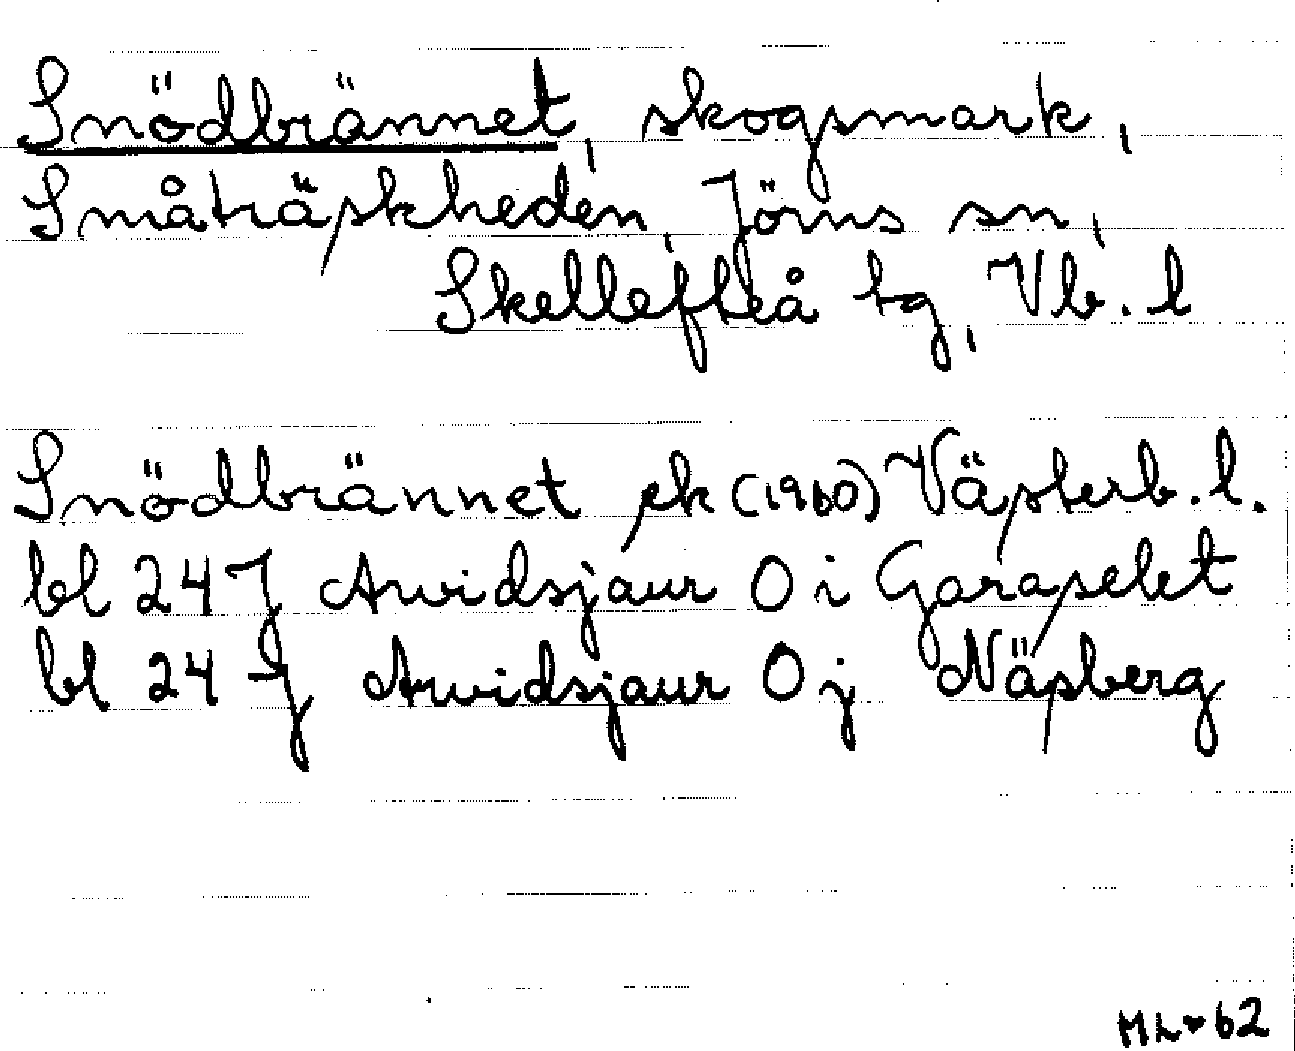 Snödbrännet, skogsmark,
Småträskheden, Jörns sn,
Skellefteå tg, Vb. l
Snödbrännet ek (1960) Västerb. l.
bl 24 J Arvidsjaur O i Garaselet
bl 24 J Arvidsjaur O j Näsberg
62